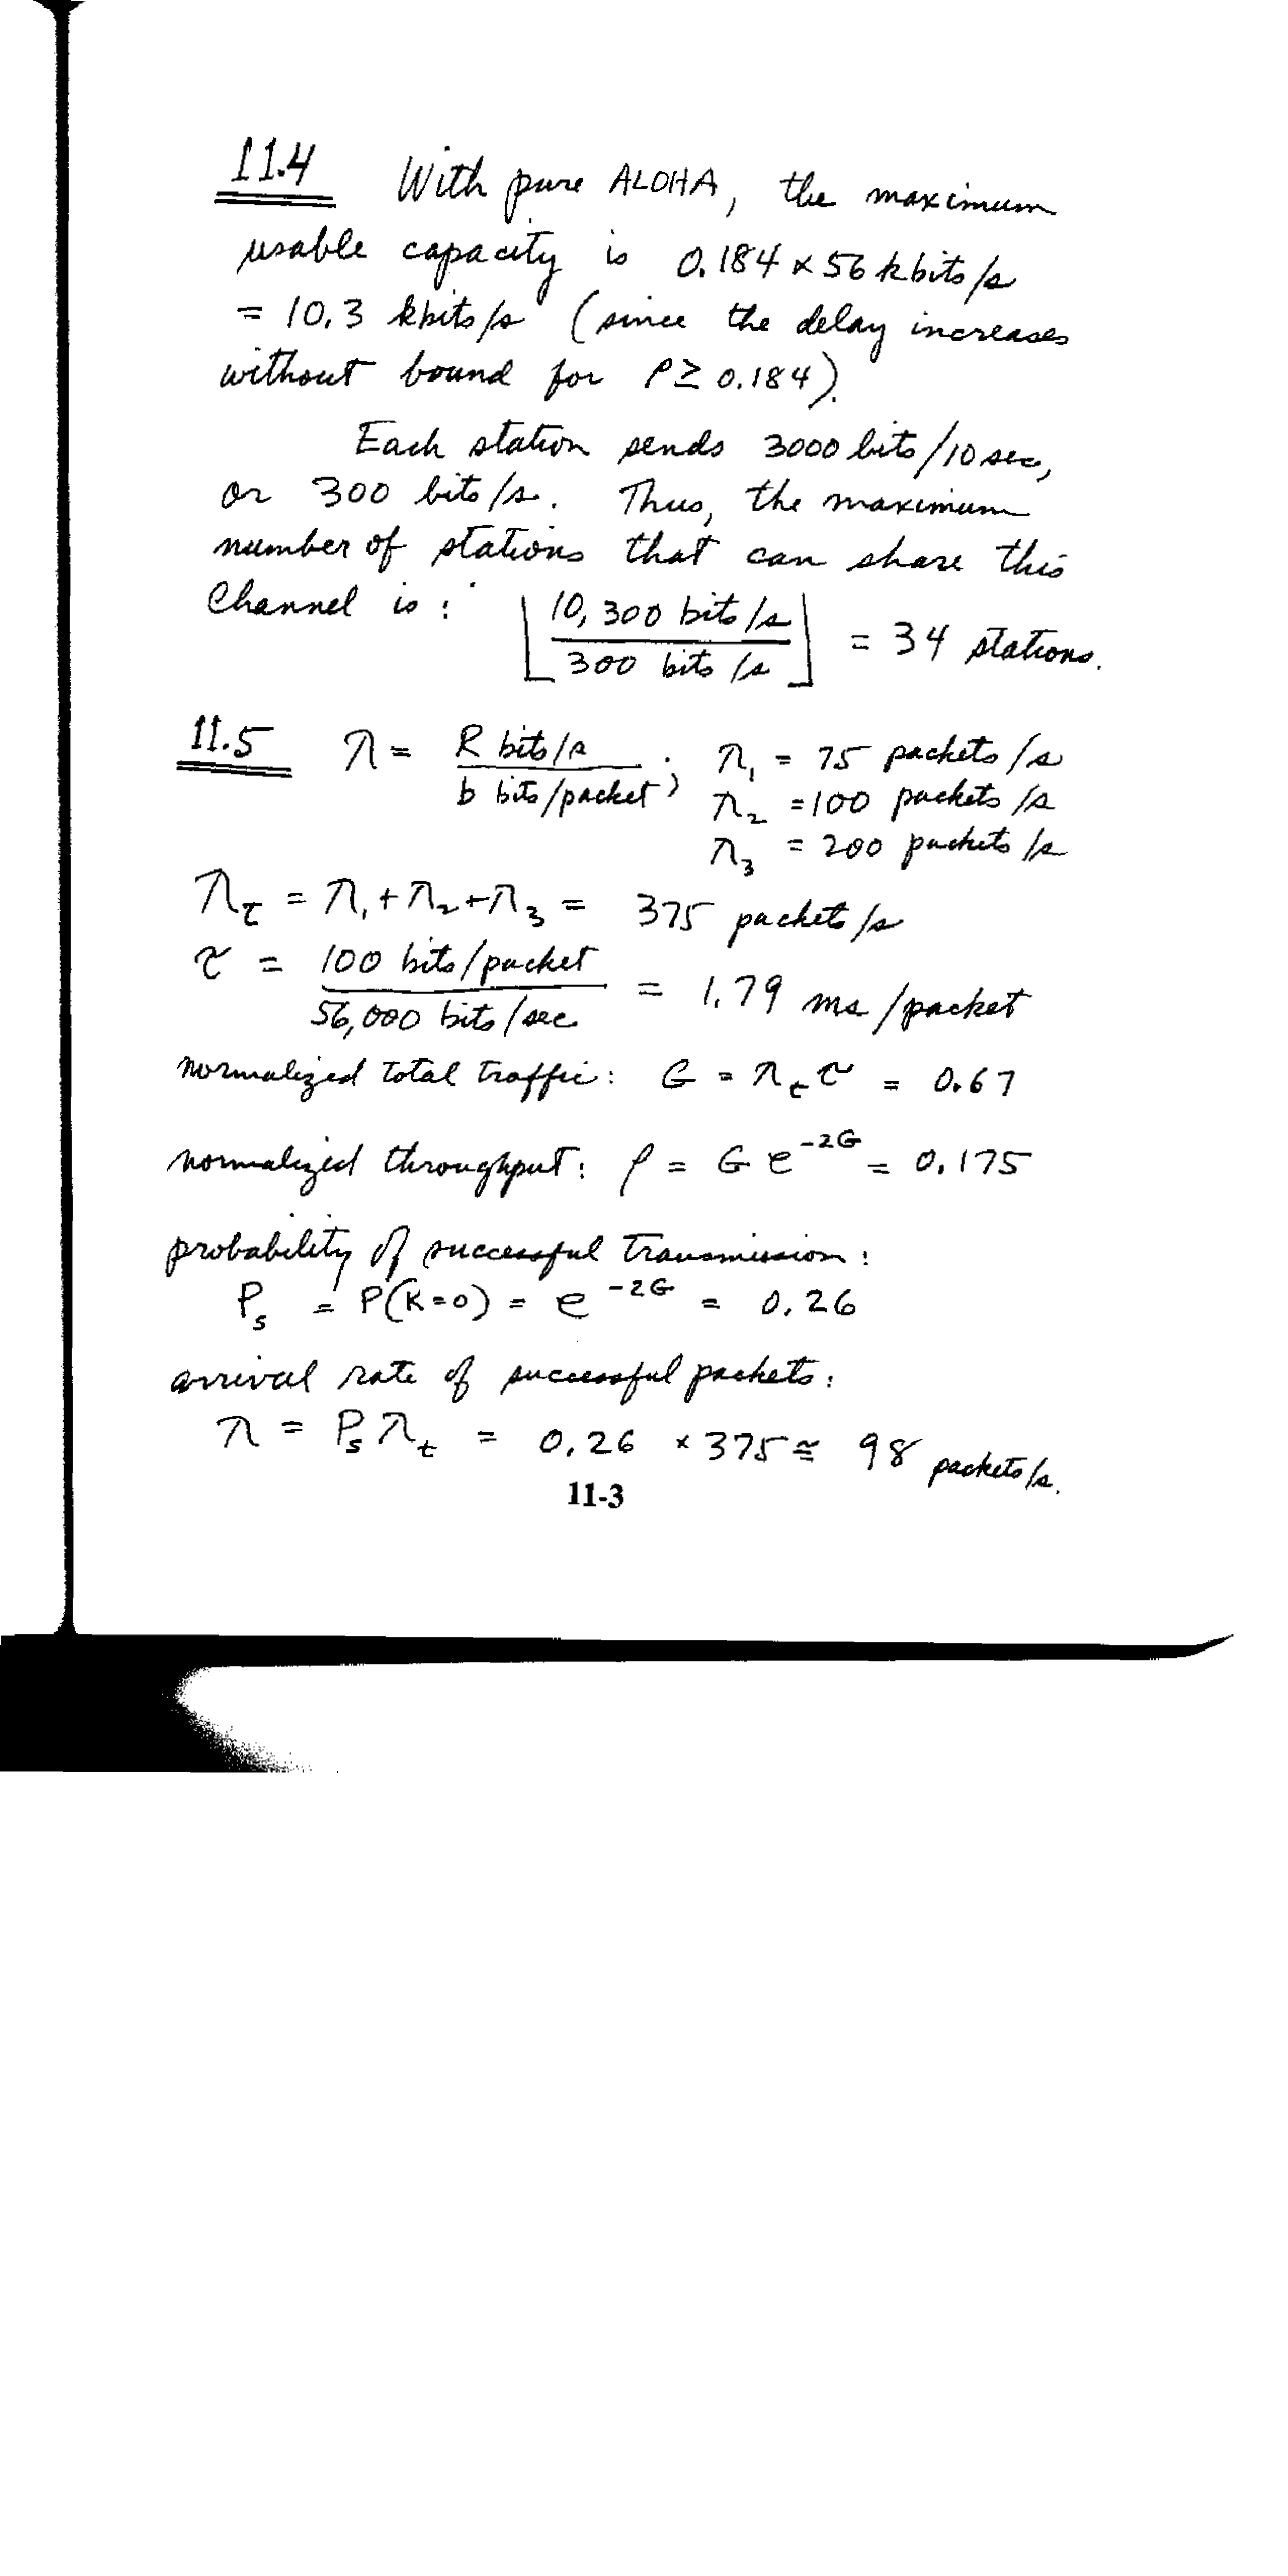 11.4 With pure ALOHA, the maximum
usable capacity is 0.184 × 56 kbits/s
= 10.3 kbits/s (since the delay increases
without bound for ρ ≥ 0.184).
Each station sends 3000 bits/10 sec,
or 300 bits/s. Thus, the maximum
number of stations that can share this
Channel is: ⌊10,300 bits/s / 300 bits/s⌋ = 34 stations.
11.5 λ = R bits/s / b bits/packet ; λ₁ = 75 packets/s
λ₂ = 100 packets/s
λ₃ = 200 packets/s
λt = λ₁ + λ₂ + λ₃ = 375 packets/s
τ = 100 bits/packet / 56,000 bits/sec = 1.79 ms/packet
normalized total traffic: G = λt τ = 0.67
normalized throughput: ρ = G e^-2G = 0.175
probability of successful transmission:
Ps = P(K=0) = e^-2G = 0.26
arrival rate of successful packets:
λ = Ps λt = 0.26 × 375 ≅ 98 packets/s.
11-3